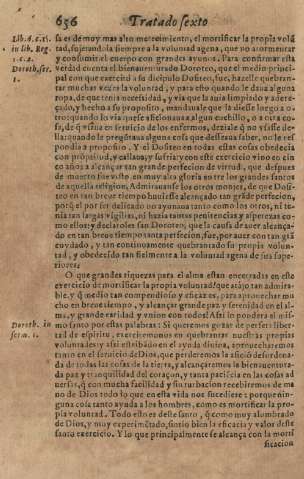 656 Tratado sexto
Lib. 4. c. 15.
in lib. Reg.
1. c. 2.
Doroth. ser.
1.
sa es de muy mas alto merecimiento, el mortificar la propia volũ
tad, sujetandola siempre a la voluntad agena, que no atormentar
y consumir el cuerpo con grandes ayunos. Para confirmar esta
verdad cuenta el bienauenturado Doroteo, que el medio princi-
pal con que exercitò a su dicipulo Dositeo, fue, hazelle quebran-
tar muchas vezes la voluntad, y para esto quando le daua alguna
ropa, de que tenia necessidad, y via que la auia limpiado y adere-
çado, y hecho a su proposito, mandauale que la diesse luego a o-
tro: quando lo via que se aficionaua a algun cuchillo, o a otra co-
sa, de q̃ vsaua en seruicio de los enfermos, dezia le q̃ no vsasse de-
llas: quando le preguntaua alguna cosa que desseaua saber, no le res
pondia a proposito. Y el Dositeo en todas estas cosas obedecia
con prontitud, y callaua, y sufria: y con este exercicio vino en cin
co años a alcançar tan grande perfecion de virtud, que despues
de muerto fue visto en muy alta gloria entre los grandes santos
de aquella religion. Admirauanse los otros monjes, de que Dosi-
teo en tan breve tiempo huuiesse alcançado tan grãde perfecion,
porq̃ el por ser delicado no ayunaua tanto como los otros, ni te-
nia tan largas vigilias, ni hazia tantas penitencias y asperezas co-
mo ellos: y declaroles san Doroteo, que la causa de auer alcança-
do en tan breve tiempo tanta perfecion, fue, por auer con tan grã
cuydado, y tan continuamente quebrantado su propia volun-
tad, y obedecido tan fielmente a la voluntad agena de sus supe-
riores.
O que grandes riquezas para el alma estan encerradas en este
exercicio de mortificar la propia voluntad! que atajo tan admira-
ble, y q̃ medio tan compendioso y eficaz es, para aprouechar mu
cho en breve tiempo, y alcançar grande paz y serenidad en el al-
ma, y grande caridad y vnion con todos! Assi lo pondera el mis-
Doroth. in
ser. n. 1.
mo santo por estas palabras: Si queremos gozar de perfeta liber-
tad de espiritu, exercitemonos en quebrantar nuestras propias
voluntades: y assi estribãdo en el ayuda diuina, aprouecharemos
tanto en el seruicio de Dios, que perderemos la afició desordena-
da de todas las cosas de la tierra, y alcançaremos la bienauentura-
da paz y tranquilidad del coraçon, y tanta paciẽcia en las cosas ad
uersas, q̃ con mucha facilidad y sin turbacion recibiremos de ma
no de Dios todo lo que en esta vida nos sucediere: porque nin-
guna cosa tanto ayuda a los hombres, como es mortificar la pro-
pia voluntad. Todo esto es deste santo, q̃ como muy alumbrado
de Dios, y muy experimẽtado, sintio bien la eficacia y valor deste
santo exercicio. Y lo que principalmente se alcança con la morti
ficacion